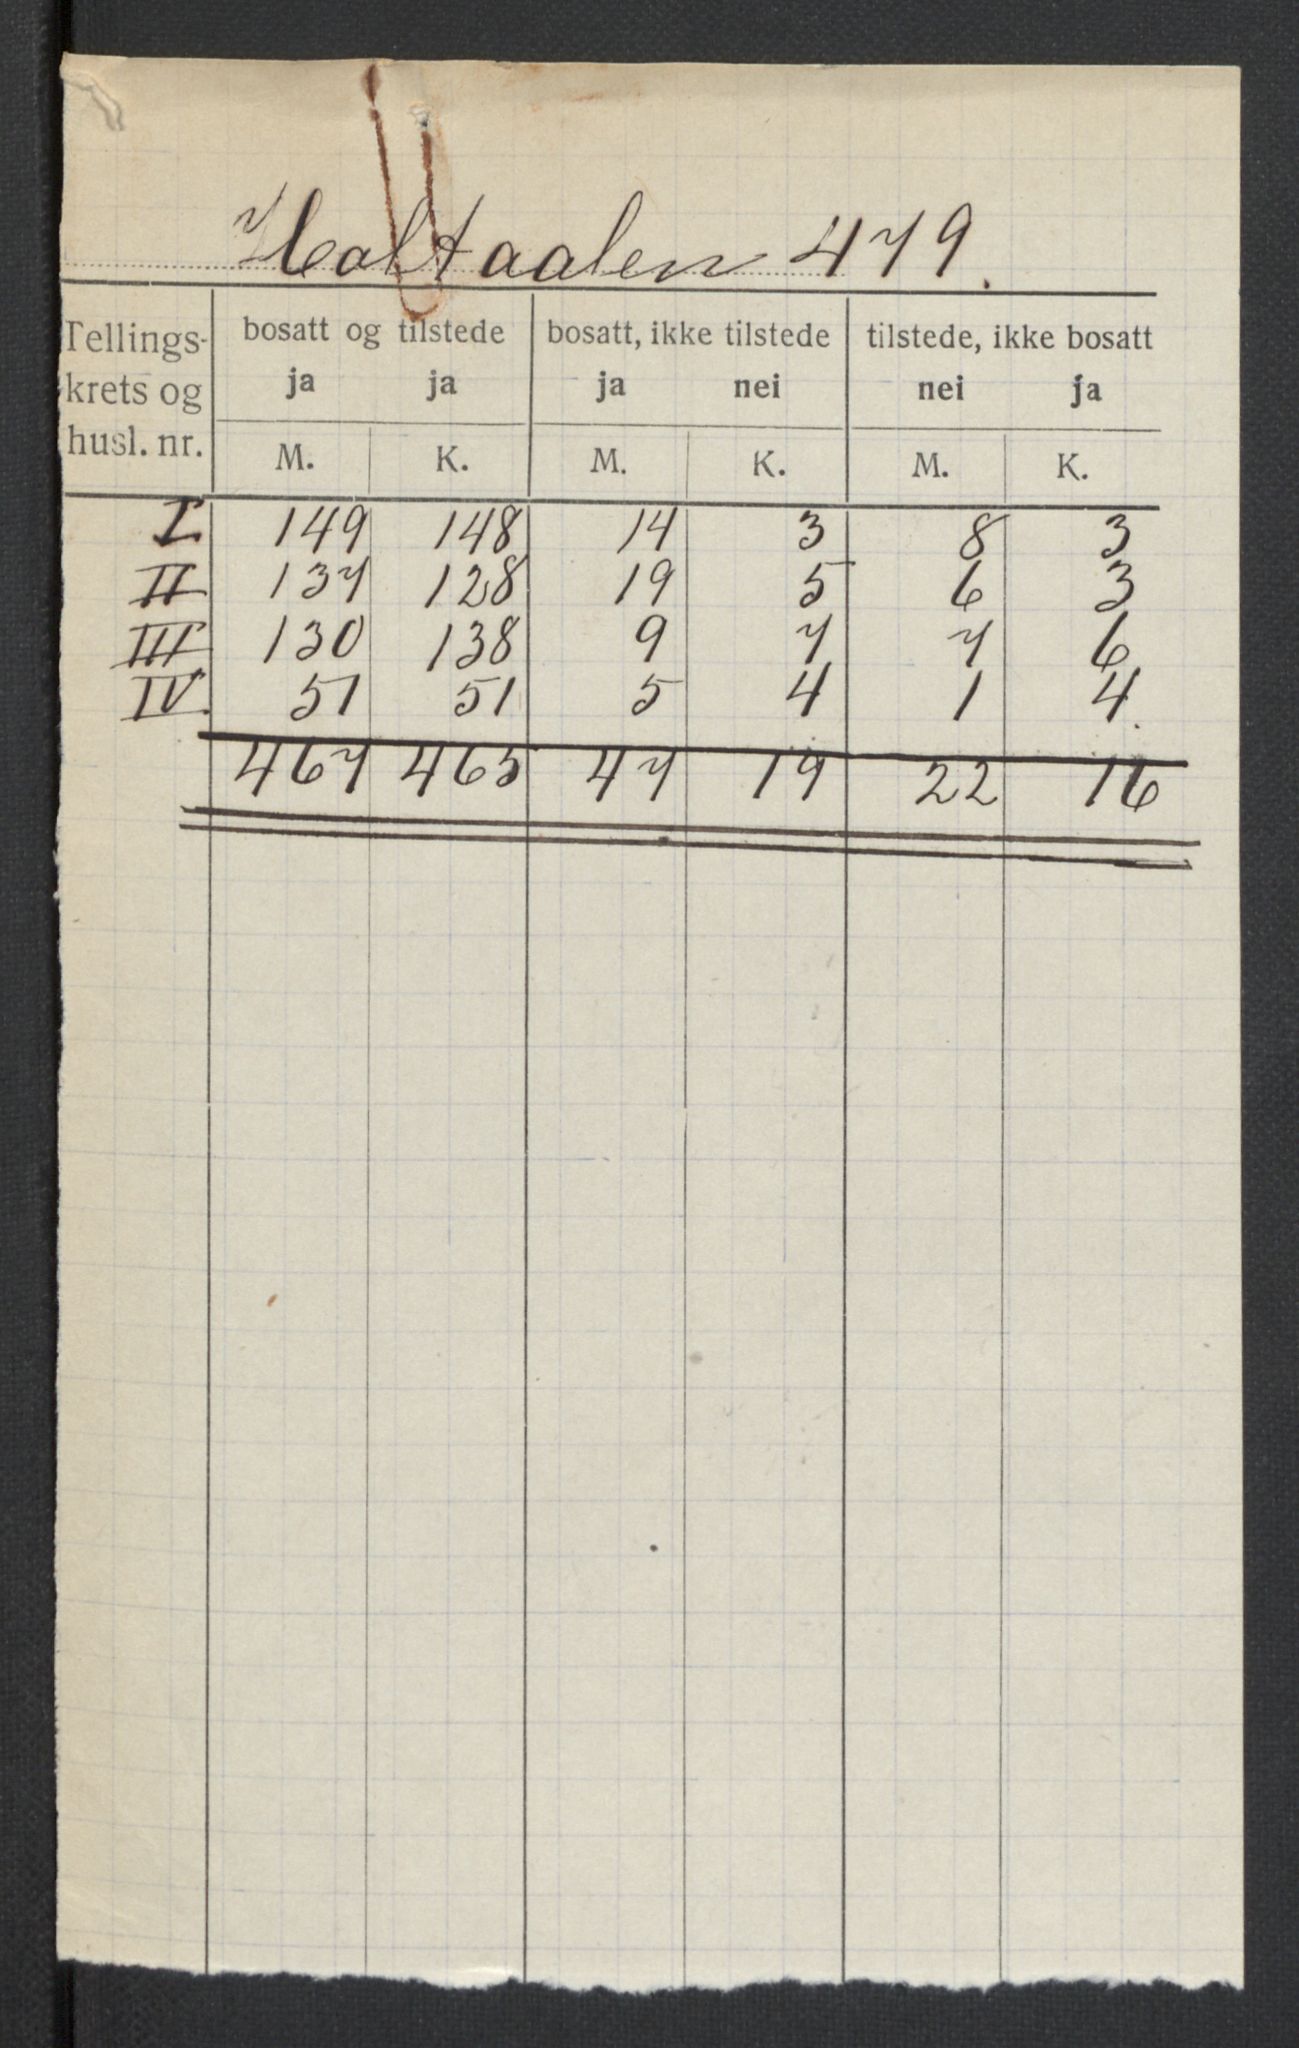 Holtaalen 479.
Tellings-krets og husl. nr. | bosatt og tilstede | bosatt, ikke tilstede | tilstede, ikke bosatt
ja ja | ja nei | nei ja
M. K. | M. K. | M. K.
I 149 148 14 3 8 3
II 137 128 19 5 6 3
III 130 138 9 7 7 6
IV. 51 51 5 4 1 4.
467 465 47 19 22 16